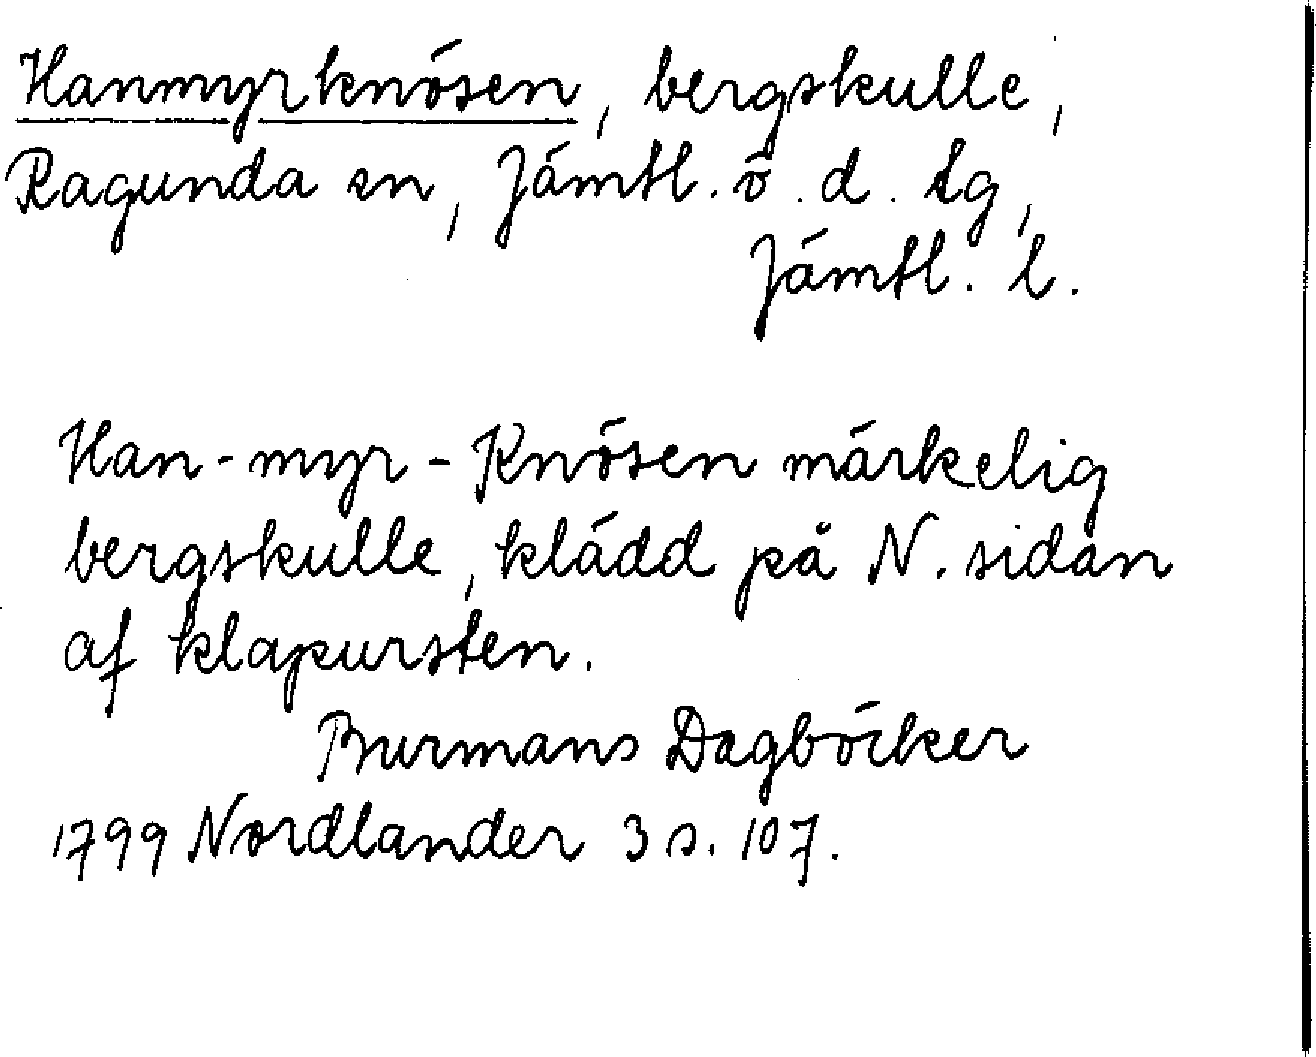 Hanmyrknösen, bergskulle,
Ragunda sn, Jämtl. ö. d. tg,
Jämtl. l.
Han-myr-Knösen märkelig
bergskulle, klädd på N. sidan
af klapursten.
Burmans Dagböcker
1799 Nordlander 3 s. 107.